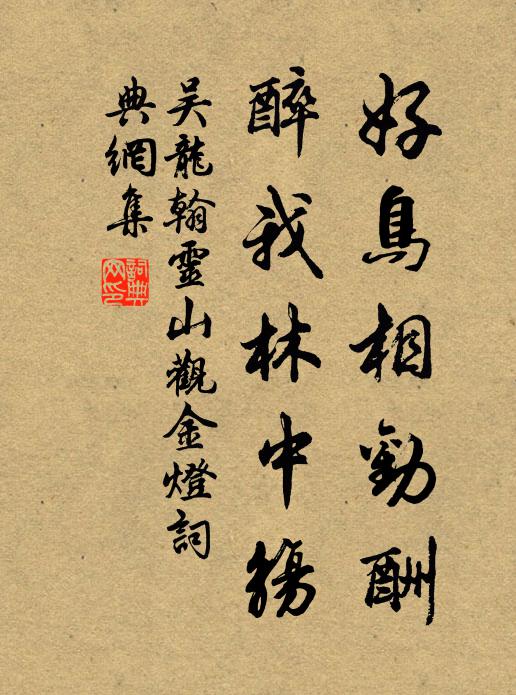 好鳥相勸酬
醉我林中觴
吴龍翰靈山觀金燈詞
典網集
詞典網印